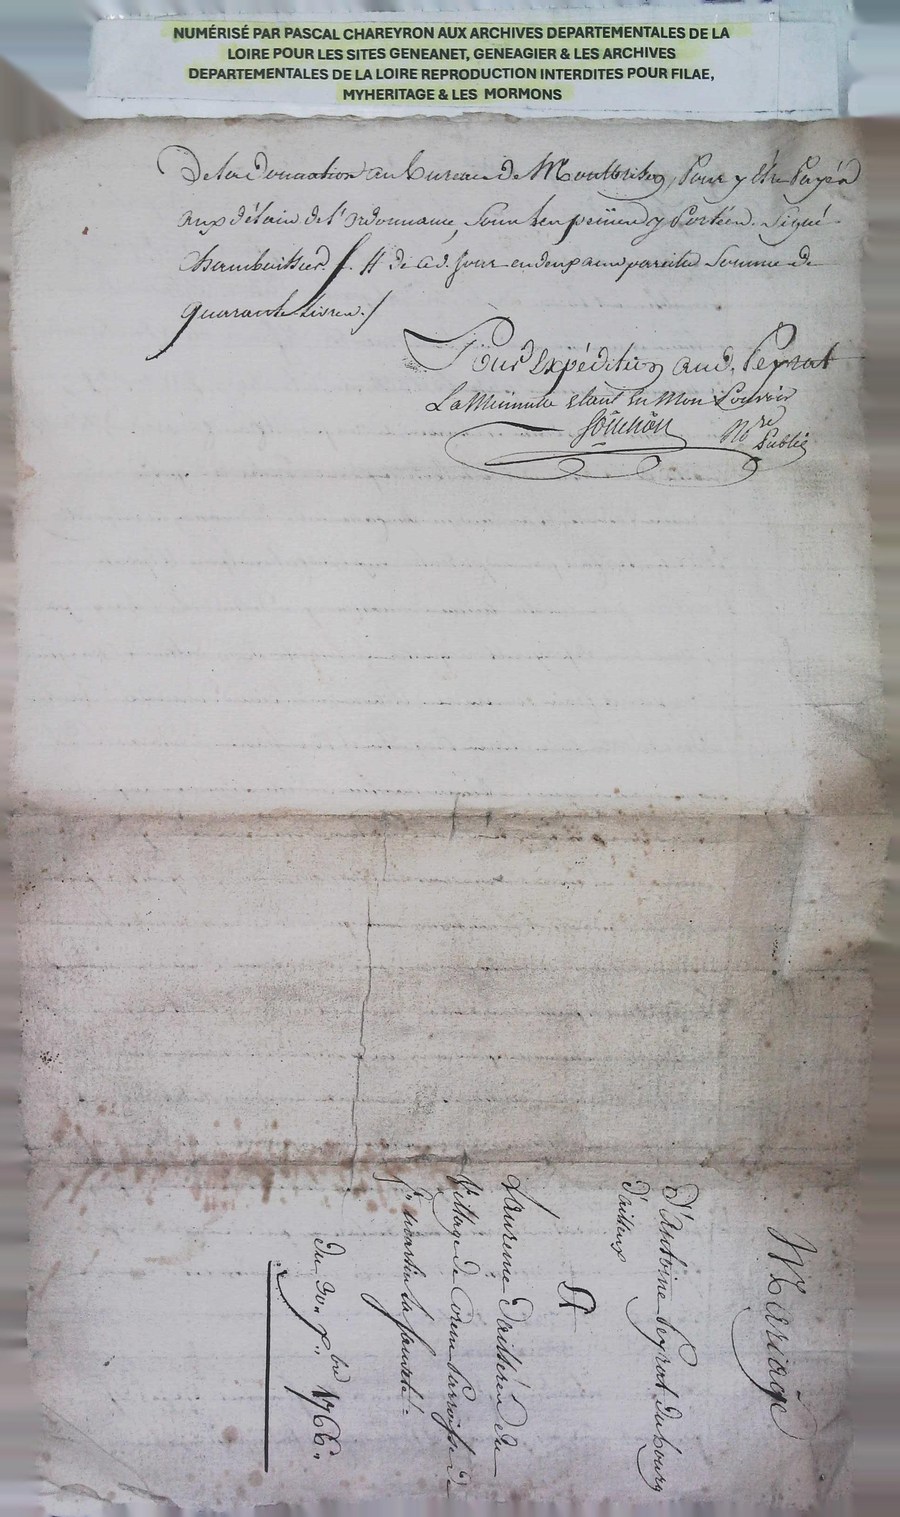 NUMÉRISÉ PAR PASCAL CHAREYRON AUX ARCHIVES DEPARTEMENTALES DE LA
LOIRE POUR LES SITES GENEANET, GENEAGIER & LES ARCHIVES
DEPARTEMENTALES DE LA LOIRE REPRODUCTION INTERDITES POUR FILAE,
MYHERITAGE & LES MORMONS
De la Donnation au Bureau de Montbrison, Pour y Etre Payés
aux délais de l'ordonnance, Sous les peines y Portées. Signé
de ced. Jour en deux pareilles Somme de
quarante Livres./
Pour Expédition aud. Peyrat
La Minutte Etant En Mon Pouvoir
Souchon Nre
Public
Mariage
d'Antoine Peyrat du bourg
d'ailleux
Et
Laurence du
Village de Parroisse de
St martin la sauveté
du 30e 7bre 1766.